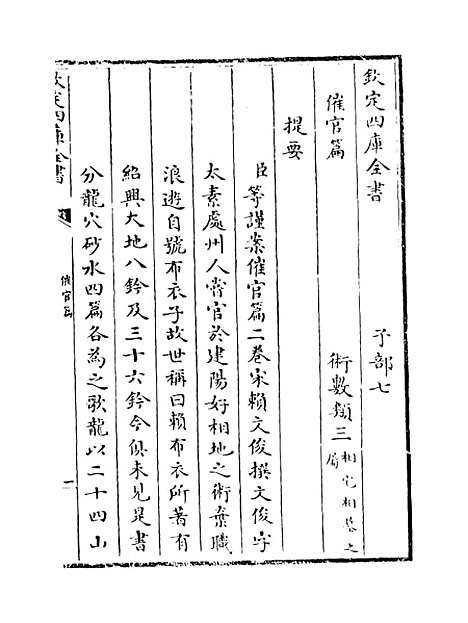 欽定四庫全書 子部七
催官篇 術數類三相宅相墓之屬
提要
臣等謹案催官篇二卷宋賴文俊撰文俊字
太素處州人嘗官於建陽好相地之術棄職
浪遊自號布衣子故世稱曰賴布衣所著有
紹興大地八鈐及三十六鈐今俱未見是書
分龍穴砂水四篇各為之歌龍以二十四山
欽定四庫全書
催官篇
一